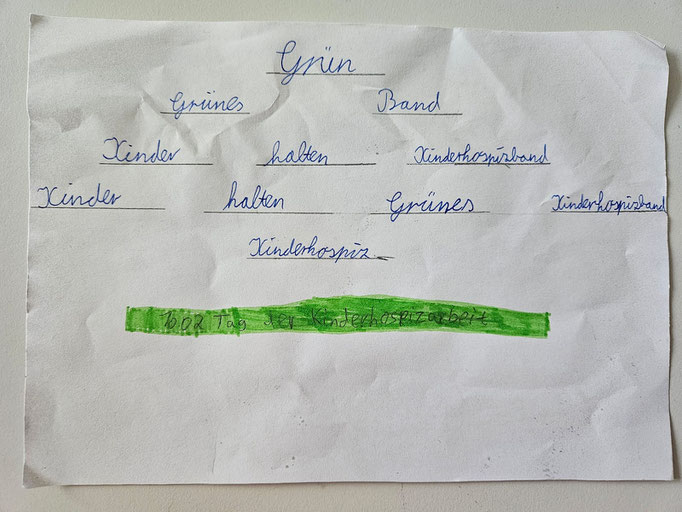 Grün
Grünes Band
Kinder halten Kinderhospizband
Kinder halten Grünes Kinderhospizband
Kinderhospiz
10 02 Tag der Kinderhospizarbeit